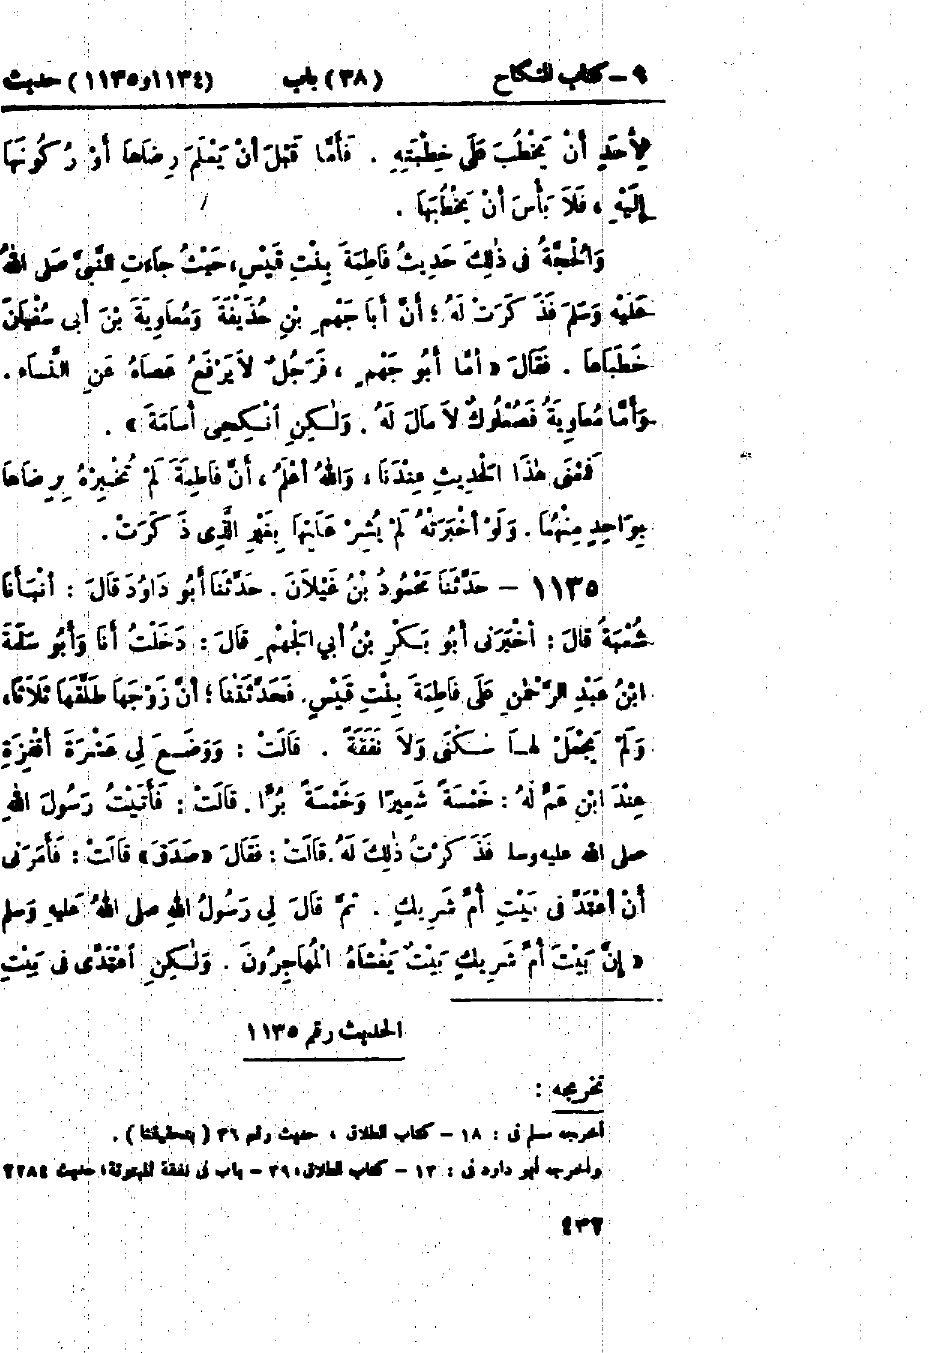 ٩ – كتاب النكاح (٣٨) باب (١١٣٤ و ١١٣٥) حديث
لِأَحَدٍ أَنْ يَخْطُبَ عَلَى خِطْبَتِهِ . فَأَمَّا قَبْلَ أَنْ يَعْلَمَ رِضَاهَا أَوْ رُكُونَهَا
إِلَيْهِ ، فَلَا بَأْسَ أَنْ يَخْطُبَهَا .
وَالْحُجَّةُ فِى ذٰلِكَ حَدِيثُ فَاطِمَةَ بِنْتِ قَيْسٍ ، حَيْثُ جَاءَتِ النَّبِىَّ صَلَى اللهُ
عَلَيْهِ وَسَلَّمَ فَذَكَرَتْ لَهُ ؛ أَنَّ أَبَا جَهْمِ بْنِ حُذَيْفَةَ وَمُعَاوِيَةَ بْنَ أَبِى سُفْيَانَ
خَطَبَاهَا . فَقَالَ « أَمَّا أَبُو جَهْمٍ ، فَرَجُلٌ لَا يَرْفَعُ عَصَاهُ عَنِ النِّسَاءِ .
وَأَمَّا مُعَاوِيَةُ فَصُعْلُوكٌ لَا مَالَ لَهُ . وَلٰكِنِ انْكِحِى أُسَامَةَ » .
فَمَعْنَى هٰذَا الْحَدِيثِ عِنْدَنَا ، وَاللهُ أَعْلَمُ ، أَنَّ فَاطِمَةَ لَمْ تُخْبِرْهُ بِرِضَاهَا
بِوَاحِدٍ مِنْهُمَا . وَلَوْ أَخْبَرَتْهُ لَمْ يُشِرْ عَلَيْهَا بِغَيْرِ الَّذِى ذَكَرَتْ .
١١٣٥ – حَدَّثَنَا مَحْمُودُ بْنُ غَيْلَانَ . حَدَّثَنَا أَبُو دَاوُدَ قَالَ : أَنْبَأَنَا
شُعْبَةُ قَالَ : أَخْبَرَنِى أَبُو بَكْرِ بْنُ أَبِي الْجَهْمِ قَالَ : دَخَلْتُ أَنَا وَأَبُو سَلَمَةَ
ابْنُ عَبْدِ الرَّحْمٰنِ عَلَى فَاطِمَةَ بِنْتِ قَيْسٍ . فَحَدَّثَتْنَا ؛ أَنَّ زَوْجَهَا طَلَّقَهَا ثَلَاثًا ،
وَلَمْ يَجْعَلْ لَهَا سُكْنَى وَلَا نَفَقَةً . قَالَتْ : وَوَضَعَ لِى عَشْرَةَ أَقْفِزَةٍ
عِنْدَ ابْنِ عَمٍّ لَهُ : خَمْسَةً شَعِيرًا وَخَمْسَةً بُرًّا . قَالَتْ : فَأَتَيْتُ رَسُولَ اللهِ
صلى الله عليه وسلم فَذَكَرْتُ ذٰلِكَ لَهُ . قَالَتْ : فَقَالَ « صَدَقَ » قَالَتْ : فَأَمَرَنِى
أَنْ أَعْتَدَّ فِى بَيْتِ أُمِّ شَرِيكٍ . ثُمَّ قَالَ لِى رَسُولُ اللهِ صلى اللهُ عَلَيهِ وَسلم
« إِنَّ بَيْتَ أُمِّ شَرِيكٍ بَيْتٌ يَغْشَاهُ الْمُهَاجِرُونَ . وَلٰكِنِ اعْتَدِّى فِى بَيْتِ
الحديث رقم ١١٣٥
تخريجه :
أخرجه مسلم فى : ١٨ – كتاب الطلاق ، حديث رقم ٣٦ ( بتحقيقنا ) .
وأخرجه أبو داود فى : ١٣ – كتاب الطلاق ، ٣٩ – باب فى نفقة المبتوتة ، حديث ٢٢٨٤
٤٣٢